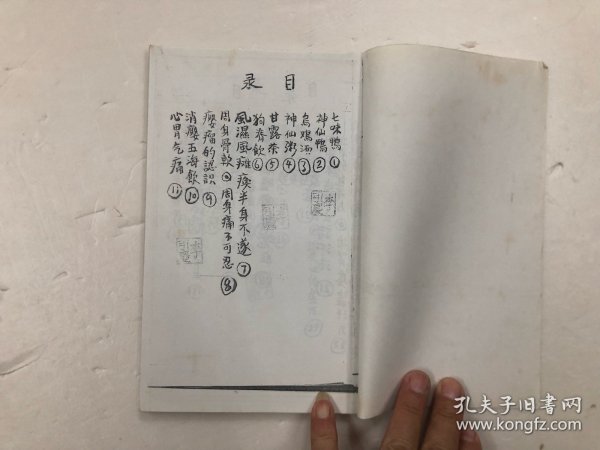 目录
七味鸭①
神仙鸭②
乌鸡汤③
神仙粥④
甘露茶⑤
狗脊飲⑥
風濕風雞痪半身不遂⑦
周身骨軟 周身痛不可忍⑧
瘿瘤的認識⑨
消瘿五海飲⑩
心胃气痛⑪
孔夫子旧书网
www.kongfz.com